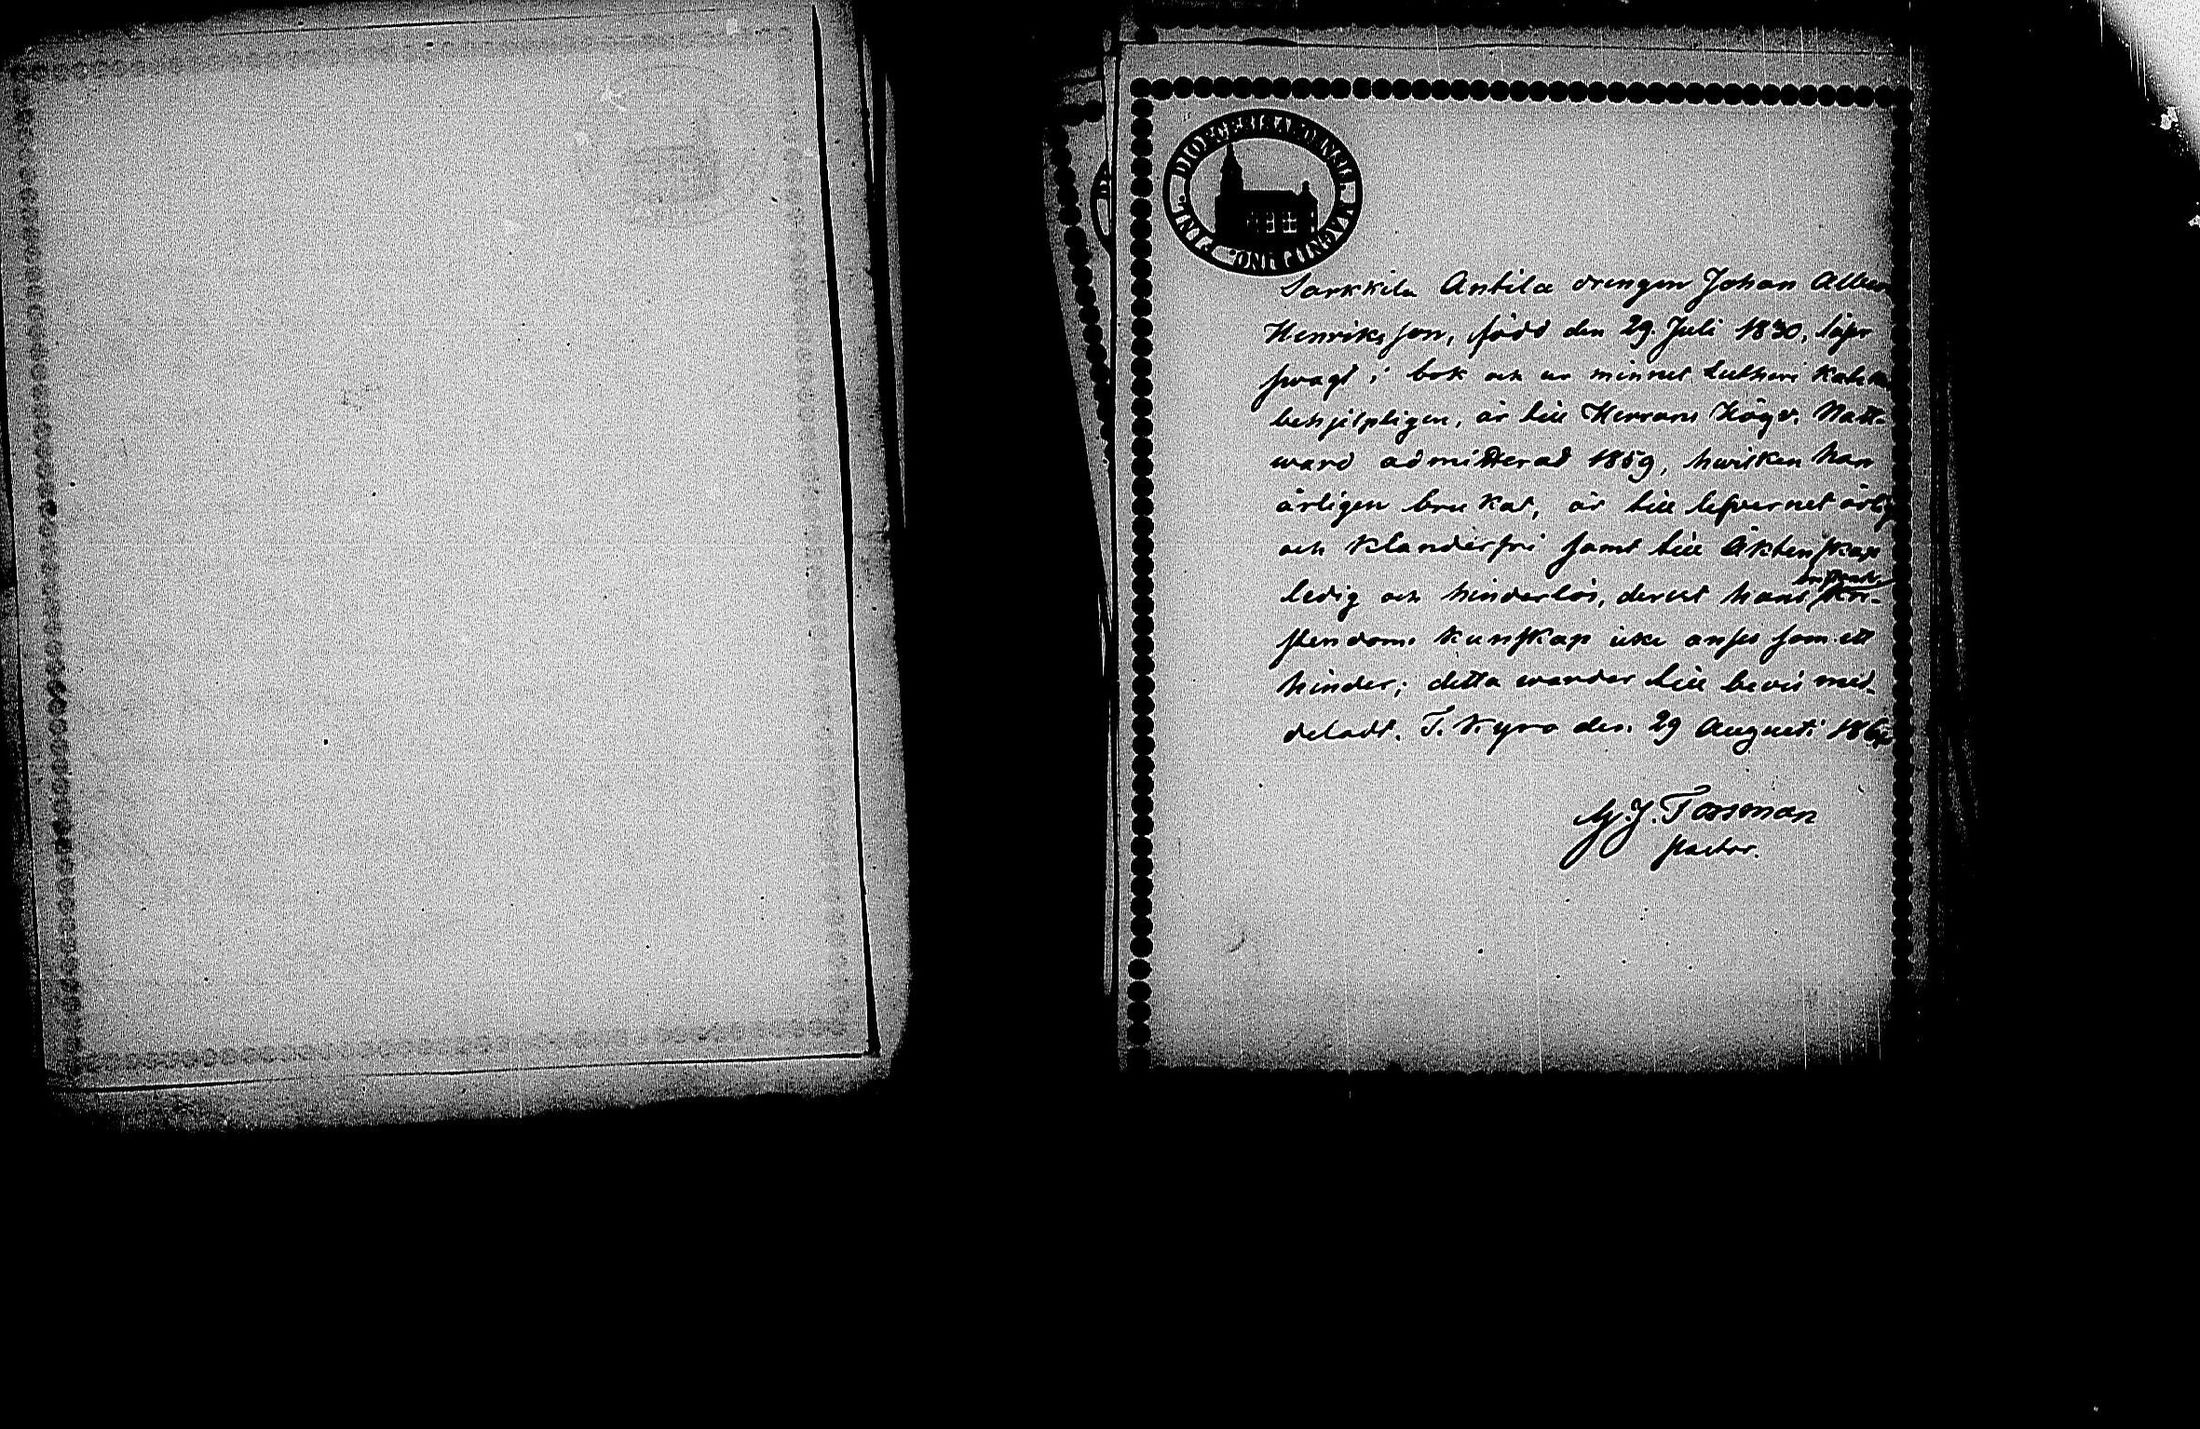 DIOECESIS ABOENSIS. MAGNI DUC. FINL.
Sarkkila Antila drengen Johan Alber
Henriksson, född den 29. Juli 1830, läser
swagt i bok och ur minnet Lutheri Kateke
behjelpligen, är till Herrans Högv. Natt-
ward admitterad 1859, hwilken han
årligen brukat, är till lefvernet ärlig
och klanderfri samt till Äktenskap
ledig och hinderlös, derest hans Kri-
stendoms kunskap icke anses som ett
hinder; detta warder till bevis med-
deladt. T. Kyro den 29 Augusti
J. Forsman
Pastor.